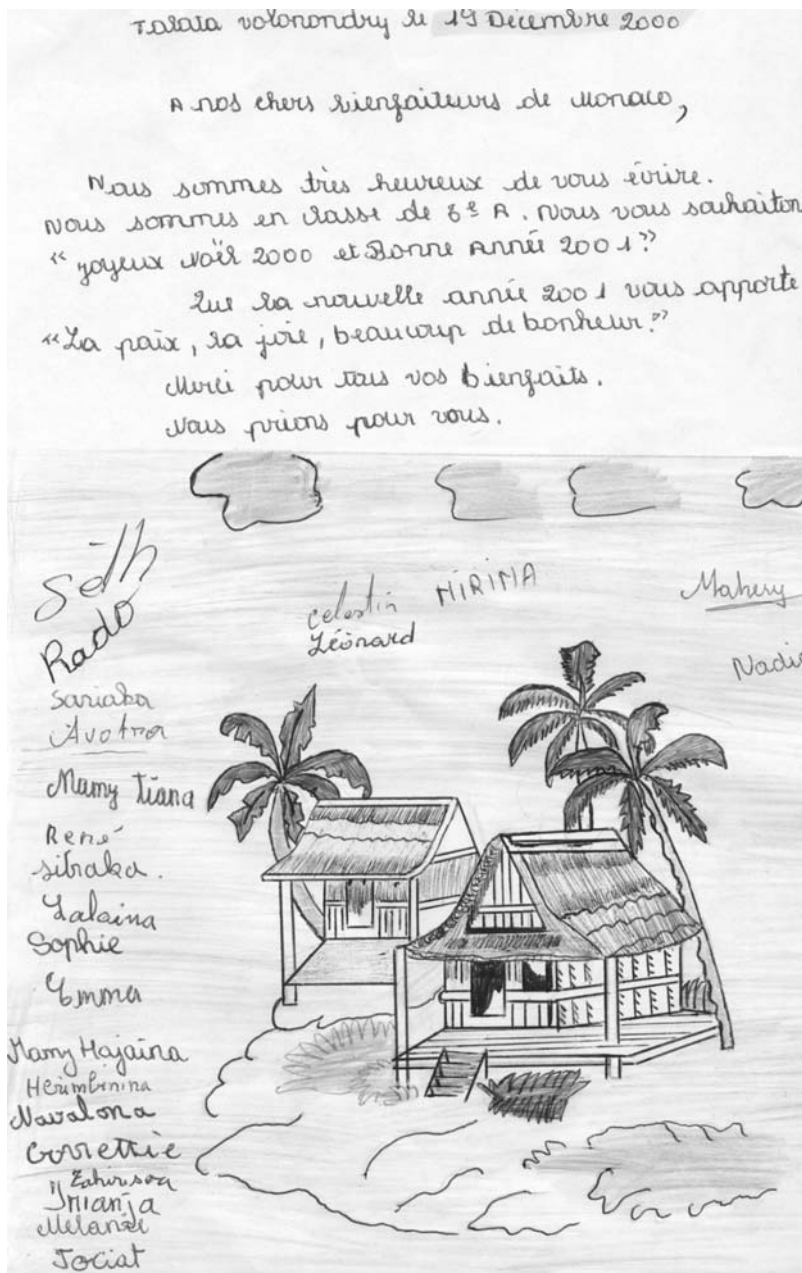 Talata volonondry le 19 Décembre 2000
A nos chers bienfaiteurs de Monaco,
Nous sommes très heureux de vous écrire.
Nous sommes en classe de 6è A. Nous vous souhaiton
"Joyeux Noël 2000 et Bonne Année 2001"
Que la nouvelle année 2001 vous apporte
"La paix, la joie, beaucoup de bonheur."
Merci pour tous vos bienfaits.
Nous prions pour vous.
Séth
Rado
celestin
Léonard
MIRIMA
Mahery
Nadi
Sariaka
Avotra
Mamy Tiana
René
sitraka.
Lalaina
Sophie
Emma
Mamy Hajaina
Herimbinina
Navalona
Gorrettie
Zahirisoa
Irianja
Melanie
Jociat